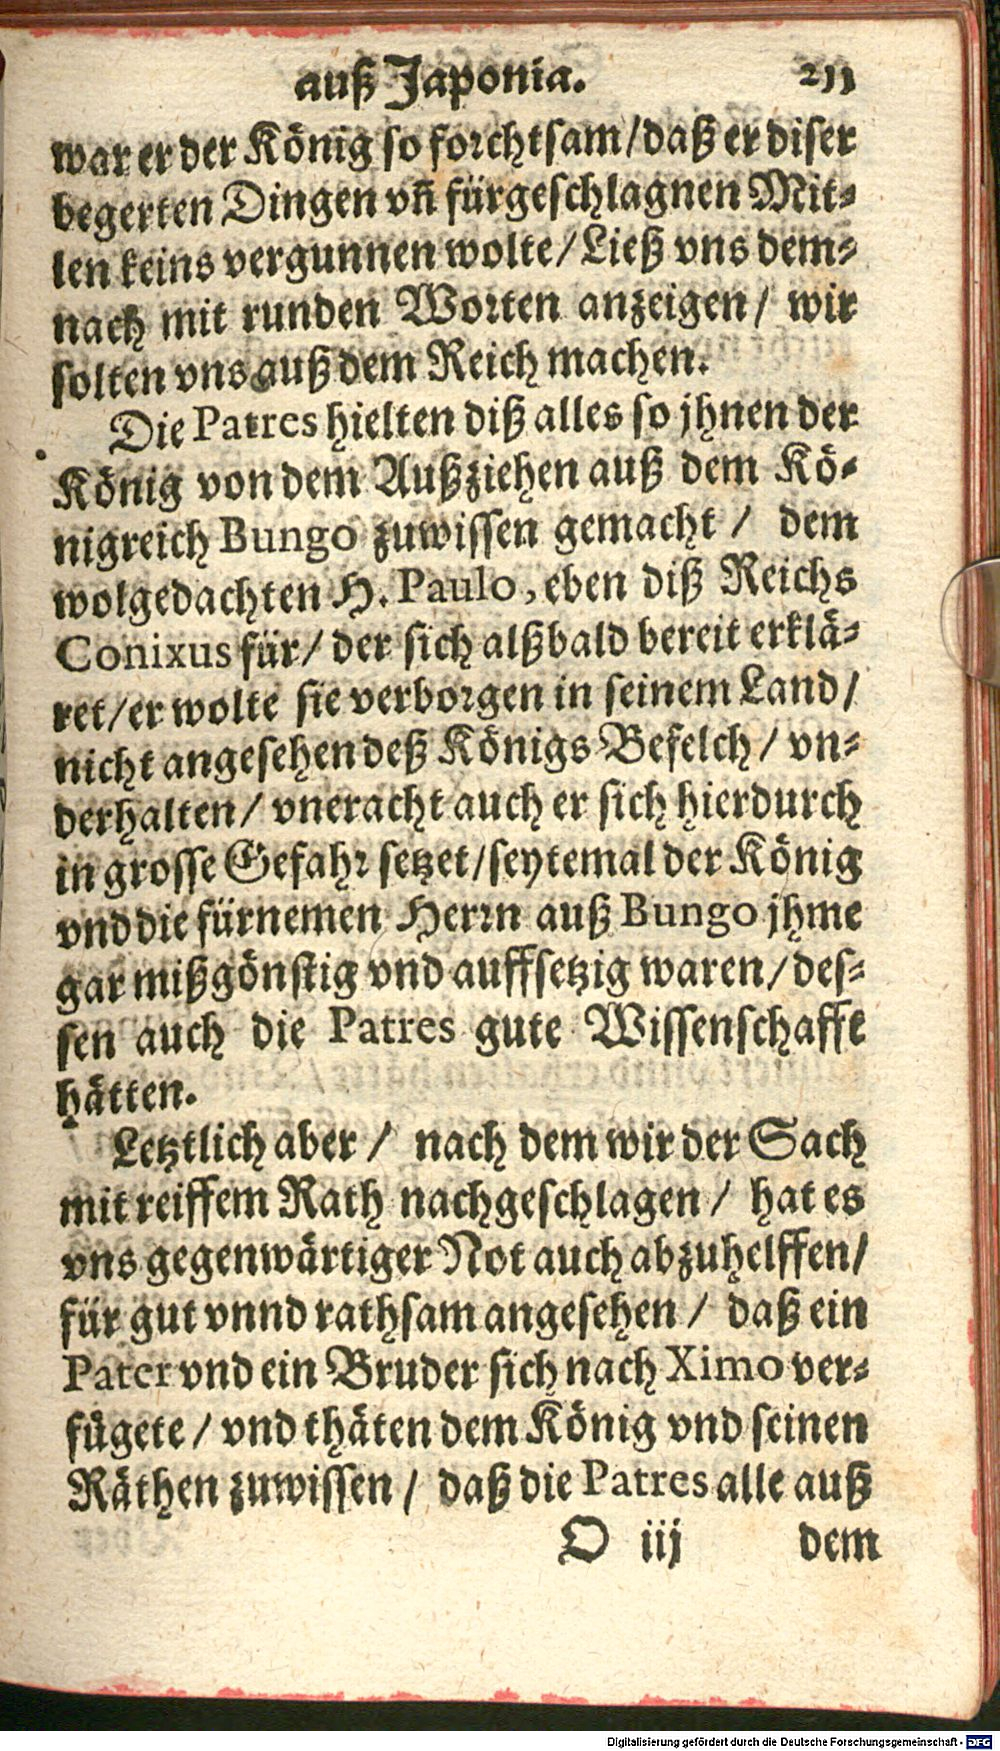 auß Japonia. 211
war er der König so forchtsam/daß er diser
begerten Dingen vñ fürgeschlagnen Mit-
len keins vergunnen wolte/Ließ vns dem-
nach mit runden Worten anzeigen/ wir
solten vns auß dem Reich machen.
Die Patres hielten diß alles so jhnen der
König von dem Außziehen auß dem Kö-
nigreich Bungo zuwissen gemacht / dem
wolgedachten H. Paulo, eben diß Reichs
Conixus für/ der sich alßbald bereit erklä-
ret/er wolte sie verborgen in seinem Land/
nicht angesehen deß Königs Befelch/ vn-
derhalten/ vneracht auch er sich hierdurch
in grosse Gefahr setzet/seytemal der König
vnd die fürnemen Herrn auß Bungo jhme
gar mißgönstig vnd auffsetzig waren/des-
sen auch die Patres gute Wissenschafft
hätten.
Letztlich aber / nach dem wir der Sach
mit reiffem Rath nachgeschlagen/ hat es
vns gegenwärtiger Not auch abzuhelffen/
für gut vnnd rathsam angesehen / daß ein
Pater vnd ein Bruder sich nach Ximo ver-
fügete / vnd thäten dem König vnd seinen
Räthen zuwissen / daß die Patres alle auß
O iij dem
Digitalisierung gefördert durch die Deutsche Forschungsgemeinschaft - DFG